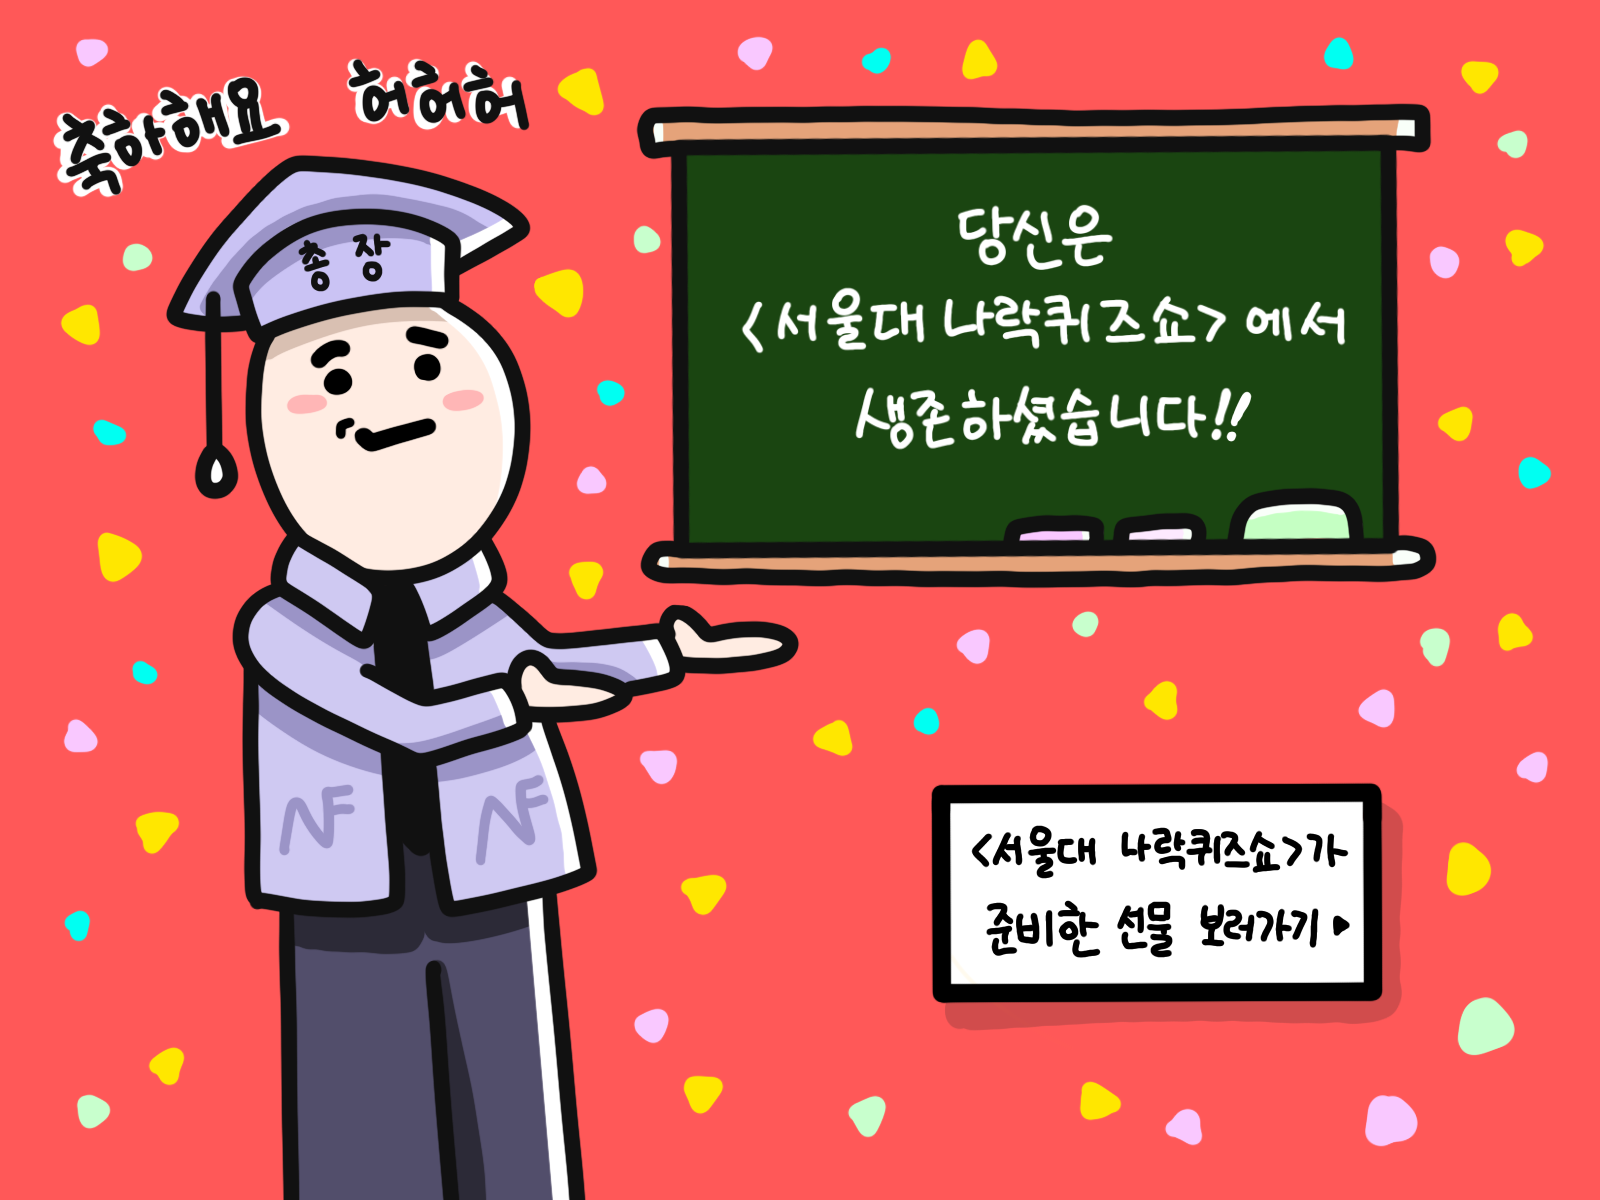 축하해요
허허허
총장
당신은
<서울대 나락퀴즈쇼>에서
생존하셨습니다!!
NF
NF
<서울대 나락퀴즈쇼>가
준비한 선물 보러가기▶